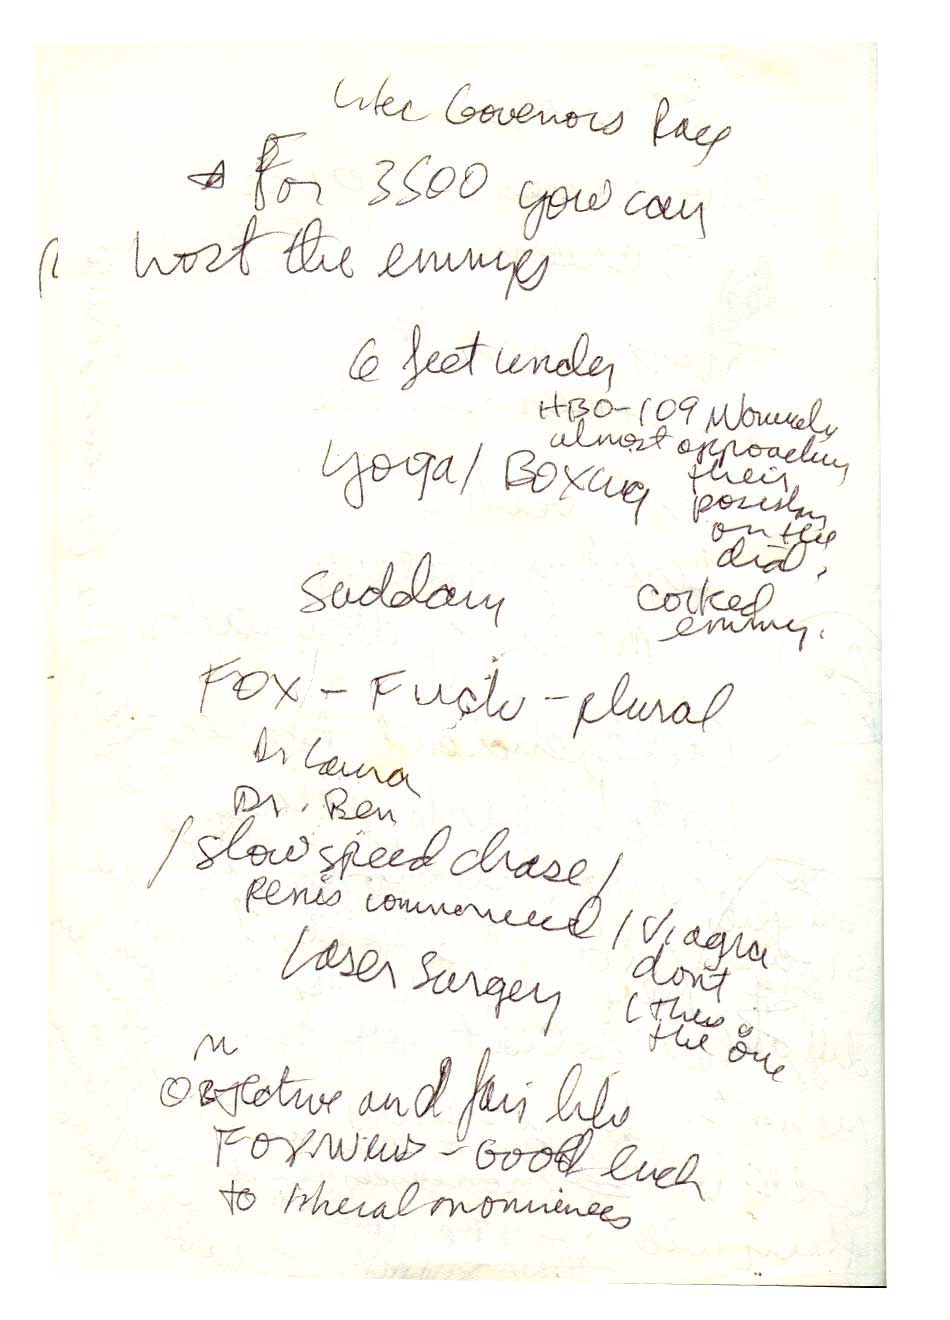 like Governors Race
For 3500 you can
host the emmys
6 feet under
HBO-109 Nominatns
almost approaching
their
position
on the
dial.
Yoga / Boxing
Saddam
corked
emmy.
FOX - Fuck - plural
Dr Laura
Dr. Ben
/ slow speed chase /
penis commercial / Viagra
dont
Laser Surgery
(this is
the one
Objective and fair like
Fox News - Good luck
to liberal nominees